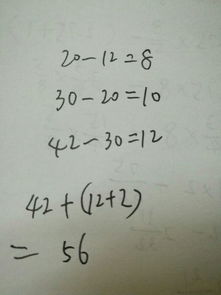 20-12=8
30-20=10
42-30=12
42+(12+2)
= 56